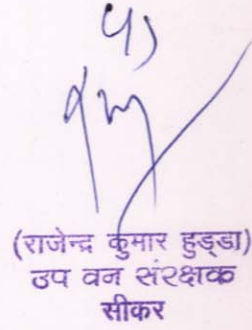 (राजेन्द्र कुमार हुड्डा)
उप वन संरक्षक
सीकर